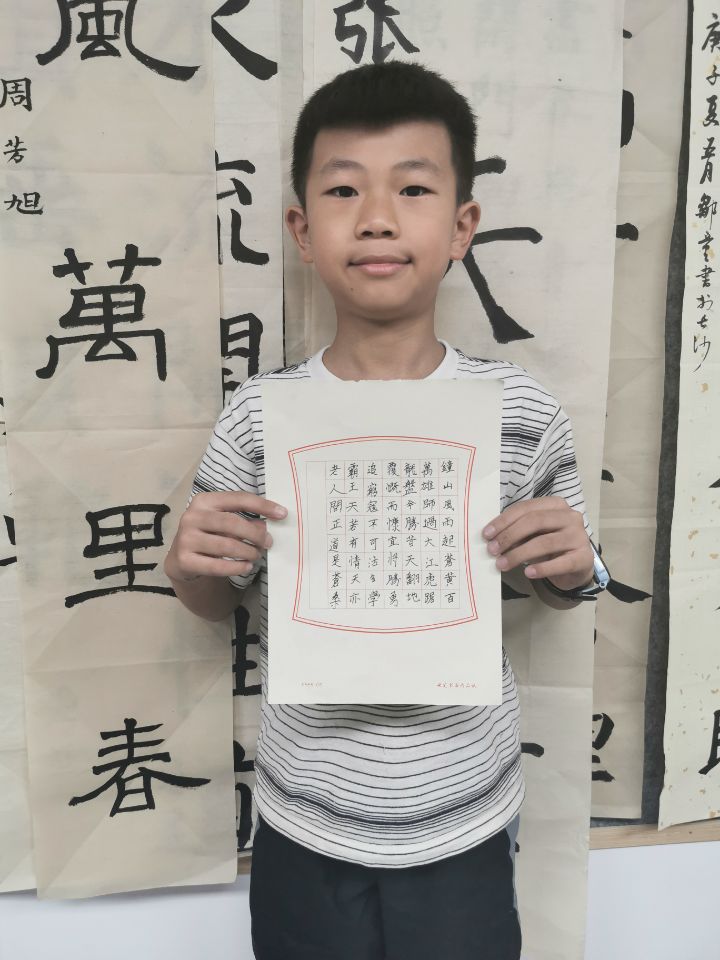 風
萬里春
周芳旭
流
張
天
里
庚子夏五月鄒書於長沙
鐘山風雨起蒼黃百
萬雄師過大江虎踞
龍盤今勝昔天翻地
覆慨而慷宜將勝勇
追窮寇不可沽名學
霸王天若有情天亦
老人間正道是蒼桑